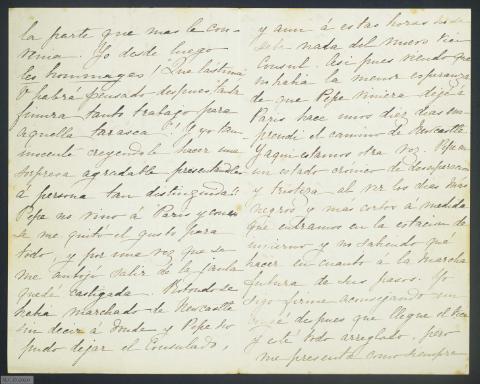 la parte que mas le con-
venia. Yo desde luego
les hommages! Que lástima
O habrá pensado despues, tanta
finura tanto trabajo para
aquella tarasca!! Y yo tan
inocente creyendole hacer una
sorpresa agradable presentandole
á persona tan distinguida!!
Pepe no vino á Paris y con eso
se me quitó el gusto para
todo, y por una vez que se
me antojó salir de la jaula
quedé castigada. Rotondo se
habia marchado de Newcastle
sin decir á donde y Pepe no
pudo dejar el Consulado,
y aun á estas horas no se
sabe nada del nuevo Vice
Consul. Asi pues viendo que
no habia la menor esperanza
de que Pepe viniera dejé á
Paris hace unos diez dias em-
prendi el camino de Newcastle
y aqui estamos otra vez. Pepe en
un estado crónico de desesperacion
y tristeza al ver los dias mas
negros y más cortos á medida
que entramos en la estacion de
invierno y no sabiendo qué
hacer en cuanto á la marcha
futura de sus pasos. Yo
sigo firme aconsejando un
despues que llegue el Vice
y esté todo arreglado, pero
me presenta como siempre